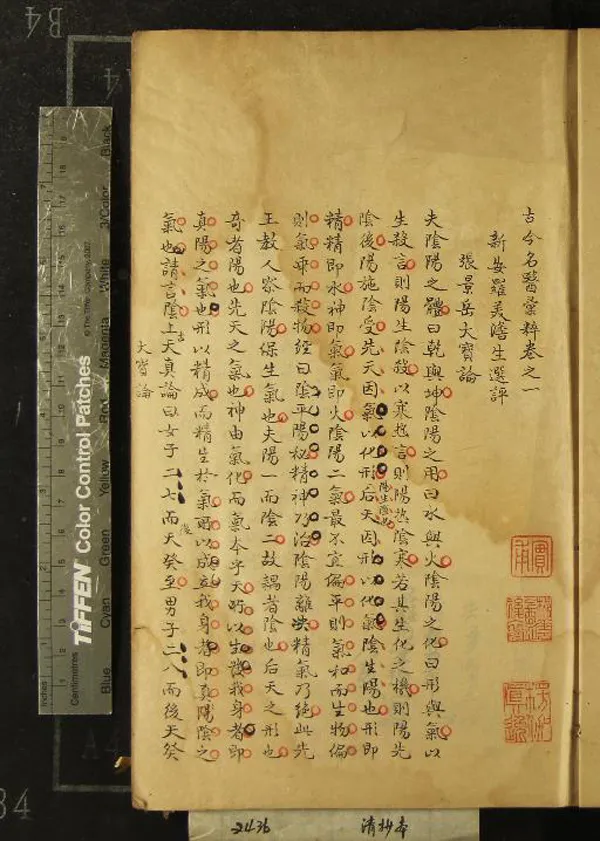 古今名醫彙粹卷之一
新安羅美澹生選評
張景岳大寶論
夫陰陽之體曰乾與坤陰陽之用曰水與火陰陽之化曰形與氣以
生殺言則陽生陰殺以寒熱言則陽熱陰寒若其生化之機則陽先
陰後陽施陰受先天因氣以化形后天因形以化氣陰生陽也形即
陽生陰也
精精即水神即氣氣即火陰陽二氣最不宜偏平則氣和而生物偏
則氣乖而殺物經曰陰平陽秘精神乃治陰陽離決精氣乃絕此先
王教人察陰陽保生氣也夫陽一而陰二故耦者陰也后天之形也
奇者陽也先天之氣也神由氣化而氣本乎天所以生發我身者即
真陽之氣也形以精成而精生於氣所以成立我身者即真陽陰之
氣也請言陰上天真論曰女子二七而天癸至男子二八而後天癸
古
後
大寶論
2436
清抄本
TIFFEN Color Control Patches
© The Tiffen Company, 2007
Inches
Centimetres
Blue
Cyan
Green
Yellow
Red
Magenta
White
3/Color
Black
B4
A4